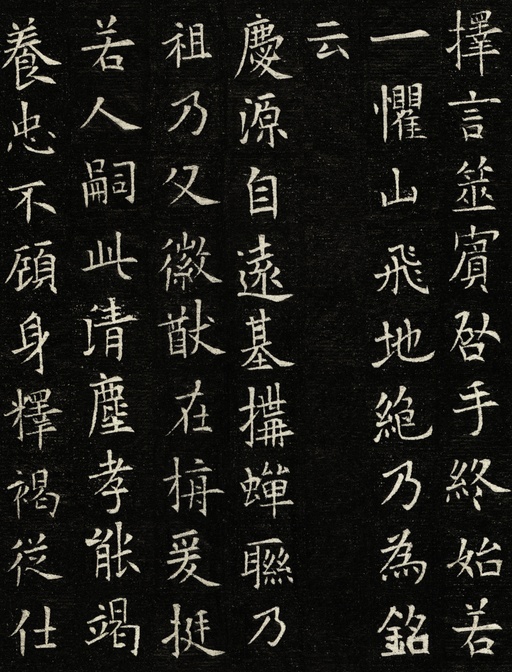 擇言筮賓啓手終始若
一懼山飛地絶乃為銘
云
慶源自遠基搆蟬聯乃
祖乃父徽猷在斿爰挺
若人嗣此清塵孝能竭
養忠不顧身釋褐從仕